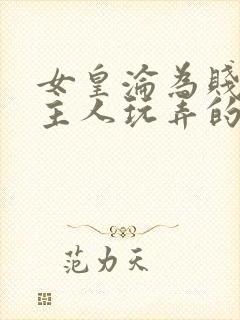 女皇淪為賤
主人玩弄的
范力天